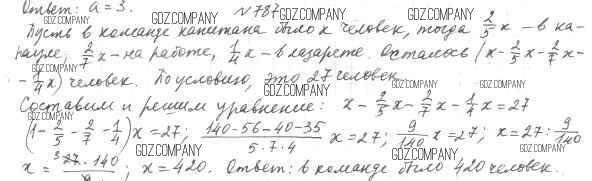 Ответ: a = 3. №787
Пусть в команде капитана было x человек, тогда 2/5 x – в ка-
рауле, 2/7 x – на работе, 1/4 x – в лазарете. Осталось (x - 2/5 x - 2/7 x -
- 1/4 x) человек. По условию, это 27 человек.
Составим и решим уравнение: x - 2/5 x - 2/7 x - 1/4 x = 27
(1 - 2/5 - 2/7 - 1/4) x = 27; (140 - 56 - 40 - 35)/(5·7·4) x = 27; 9/140 x = 27; x = 27 : 9/140
x = 27 · 140 / 9; x = 420. Ответ: в команде было 420 человек.
GDZ.COMPANY
GDZ.COMPANY
GDZ.COMPANY
GDZ.COMPANY
GDZ.COMPANY
GDZ.COMPANY
GDZ.COMPANY
GDZ.COMPANY
GDZ.COMPANY
GDZ.COMPANY
GDZ.COMPANY
GDZ.COMPANY
GDZ.COMPANY